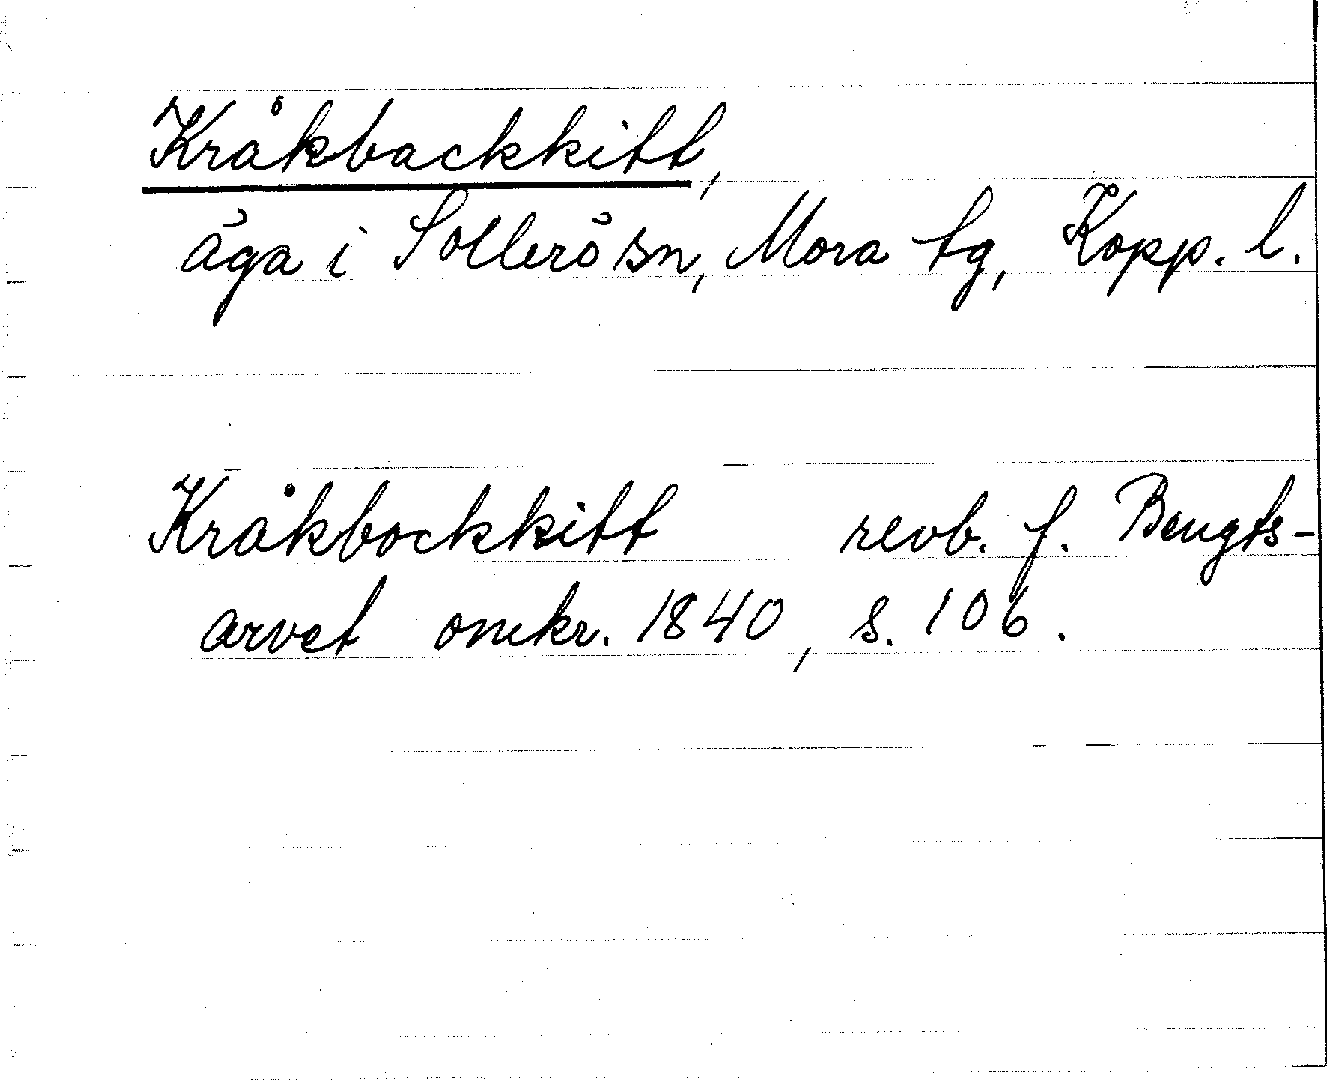 Kråkbackkitt,
äga i Sollerö sn, Mora tg, Kopp. l.
Kråkbockkitt revb. f. Bengts-
arvet omkr. 1840, s. 106.